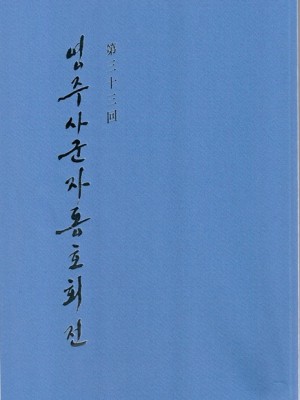 第三十三回
영주사군자동호회전